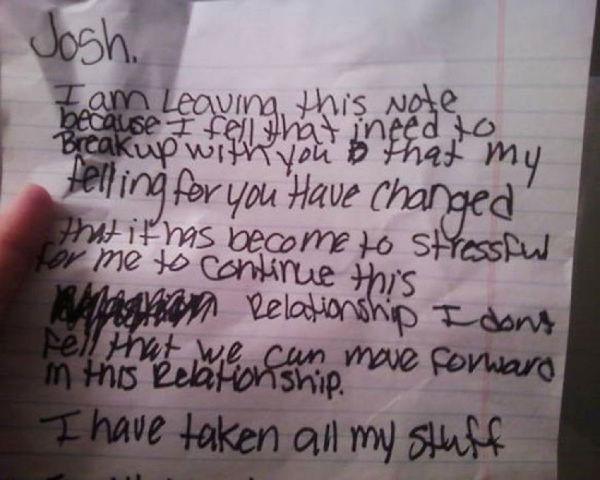 Josh.
I am Leaving this Note
because I fell that ineed to
Breakup with you that my
felling for you Have changed
that it has become to stressful
for me to continue this
Relationship I dont
Fell that we can move forward
in this Relationship.
I have taken all my stuff